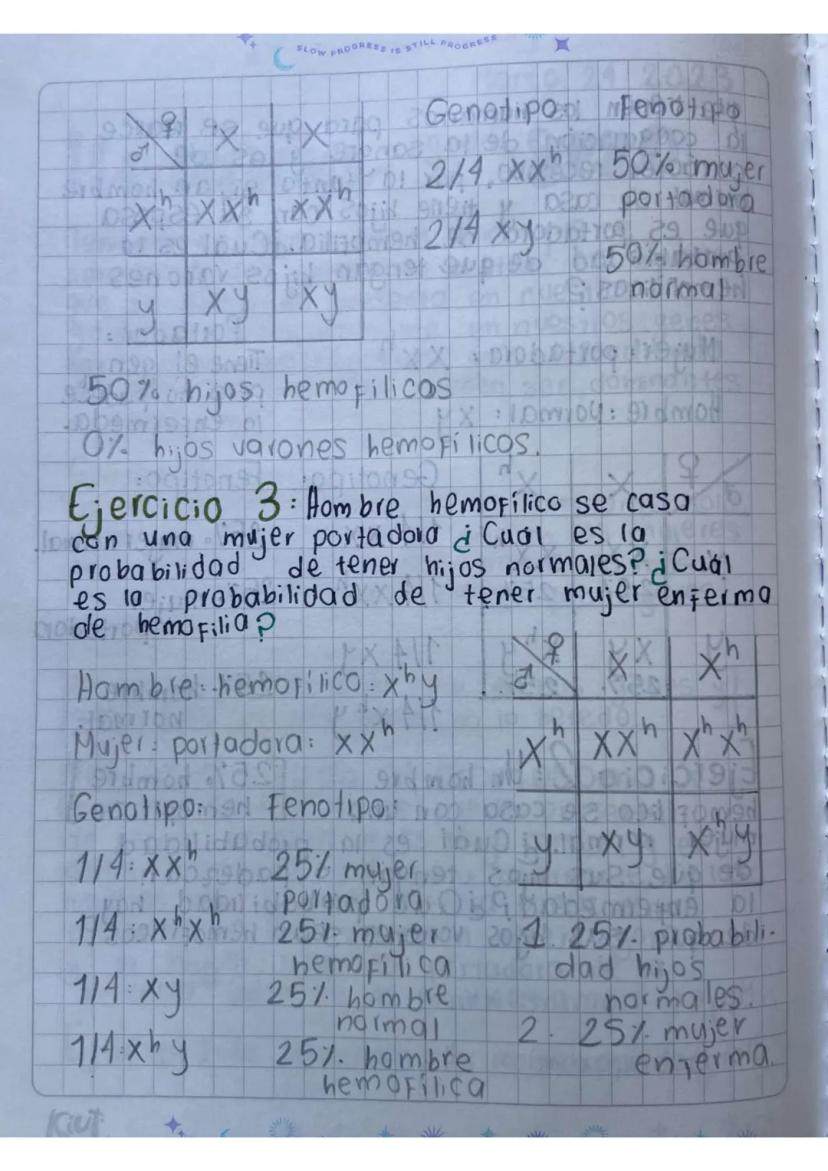 SLOW PROGRESS IS STILL PROGRESS
♀ X X
♂
Xʰ XXʰ XXʰ
y xy xy
Genotipo Fenotipo
2/4 XXʰ 50% mujer
portadora
2/4 xy
50% hombre
normal
50% hijos hemofílicos
0% hijos varones hemofílicos.
Ejercicio 3: Hombre hemofílico se casa
con una mujer portadora ¿Cuál es la
probabilidad de tener hijos normales? ¿Cuál
es la probabilidad de tener mujer enferma
de hemofilia?
Hombre hemofílico: xʰy
Mujer portadora: xxʰ
♀ X Xʰ
♂
Xʰ XXʰ XʰXʰ
y xy xʰy
Genotipo: Fenotipo:
1/4: xxʰ 25% mujer
portadora
1/4: xʰxʰ 25% mujer
hemofílica
1/4: xy 25% hombre
normal
1/4: xʰy 25% hombre
hemofílica
1. 25% probabili-
dad hijos
normales.
2. 25% mujer
enferma.